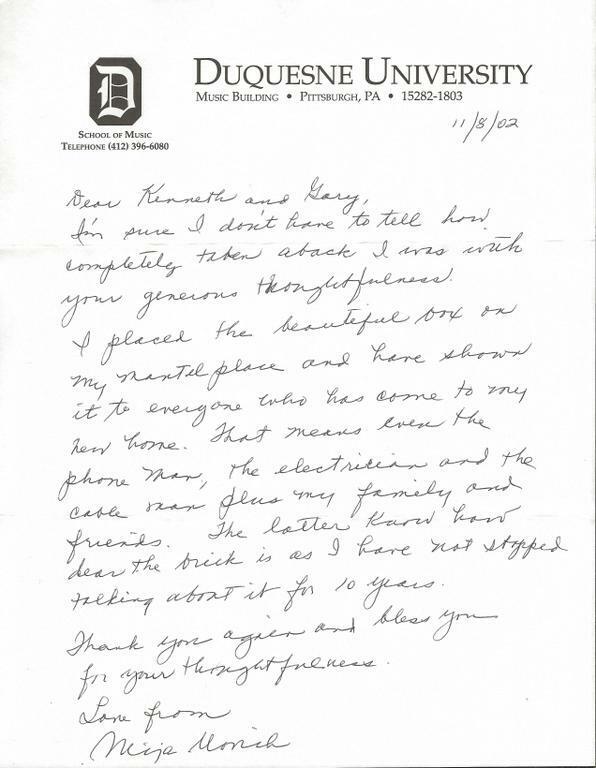 D
DUQUESNE UNIVERSITY
MUSIC BUILDING • PITTSBURGH, PA • 15282-1803
SCHOOL OF MUSIC
TELEPHONE (412) 396-6080
11/8/02
Dear Kenneth and Gary,
I'm sure I don't have to tell how
completely taken aback I was with
your generous thoughtfulness.
I placed the beautiful box on
my mantel place and have shown
it to everyone who has come to my
new home. That means even the
phone man, the electrician and the
cable man plus my family and
friends. The latter know how
dear the brick is as I have not stopped
talking about it for 10 years.
Thank you again and bless you
for your thoughtfulness.
Love from